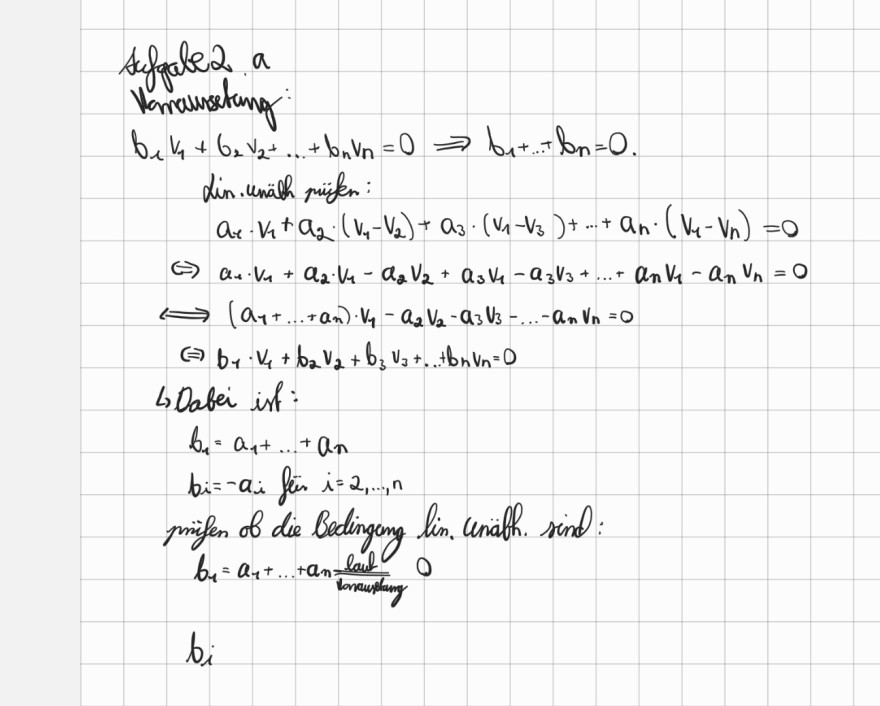 Aufgabe 2 a
Vorraussetung:
b₁v₁ + b₂v₂ + ... + bₙvₙ = 0 ⟹ b₁ + ... + bₙ = 0.
Lin. unäbh prüfen:
a₁·v₁ + a₂·(v₁-v₂) + a₃·(v₁-v₃) + ... + aₙ·(v₁-vₙ) = 0
⇔ a₁·v₁ + a₂·v₁ - a₂v₂ + a₃v₁ - a₃v₃ + ... + aₙv₁ - aₙvₙ = 0
⟺ (a₁ + ... + aₙ)·v₁ - a₂v₂ - a₃v₃ - ... - aₙvₙ = 0
⇔ b₁·v₁ + b₂v₂ + b₃v₃ + ... + bₙvₙ = 0
↳ Dabei ist:
b₁ = a₁ + ... + aₙ
bᵢ = -aᵢ für i = 2, ..., n
prüfen ob die Bedingung lin. unäbh. sind:
b₁ = a₁ + ... + aₙ = laut Vorrausetung 0
bᵢ